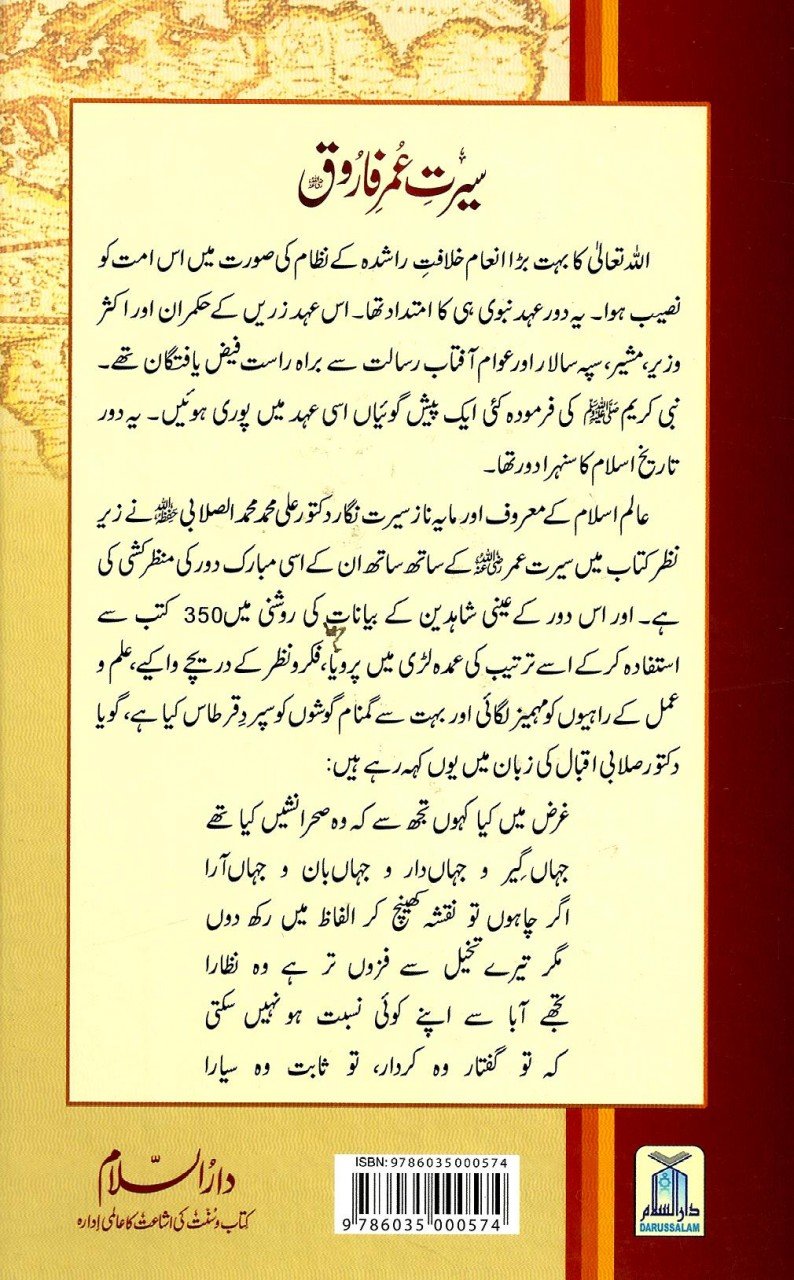 سیرتِ عُمرِ فارُوق رضی اللہ عنہ
اللہ تعالیٰ کا بہت بڑا انعام خلافتِ راشدہ کے نظام کی صورت میں اس امت کو
نصیب ہوا۔ یہ دور عہد نبوی ہی کا امتداد تھا۔ اس عہد زریں کے حکمران اور اکثر
وزیر، مشیر، سپہ سالار اور عوام آفتاب رسالت سے براہ راست فیض یافتگان تھے۔
نبی کریم ﷺ کی فرمودہ کئی ایک پیش گوئیاں اسی عہد میں پوری ہوئیں۔ یہ دور
تاریخ اسلام کا سنہرا دور تھا۔
عالم اسلام کے معروف اور مایہ ناز سیرت نگار دکتور علی محمد محمد الصلابی حفظہ اللہ نے زیر
نظر کتاب میں سیرت عمر رضی اللہ عنہ کے ساتھ ساتھ ان کے اسی مبارک دور کی منظر کشی کی
ہے۔ اور اس دور کے عینی شاہدین کے بیانات کی روشنی میں 350 کتب سے
استفادہ کر کے اسے ترتیب کی عمدہ لڑی میں پرویا، فکر و نظر کے دریچے وا کیے، علم و
عمل کے راہیوں کو مہمیز لگائی اور بہت سے گمنام گوشوں کو سپردِ قرطاس کیا ہے، گویا
دکتور صلابی اقبال کی زبان میں یوں کہہ رہے ہیں:
غرض میں کیا کہوں تجھ سے کہ وہ صحرا نشیں کیا تھے
جہاں گِیر و جہاں دار و جہاں بان و جہاں آرا
اگر چاہوں تو نقشہ کھینچ کر الفاظ میں رکھ دوں
مگر تیرے تخیل سے فزوں تر ہے وہ نظارا
تجھے آبا سے اپنے کوئی نسبت ہو نہیں سکتی
کہ تو گفتار وہ کردار، تو ثابت وہ سیارا
دارُالسّلام
کتاب و سُنّت کی اشاعت کا عالمی اِدارہ
ISBN: 9786035000574
9 786035 000574
دارالسلام
DARUSSALAM